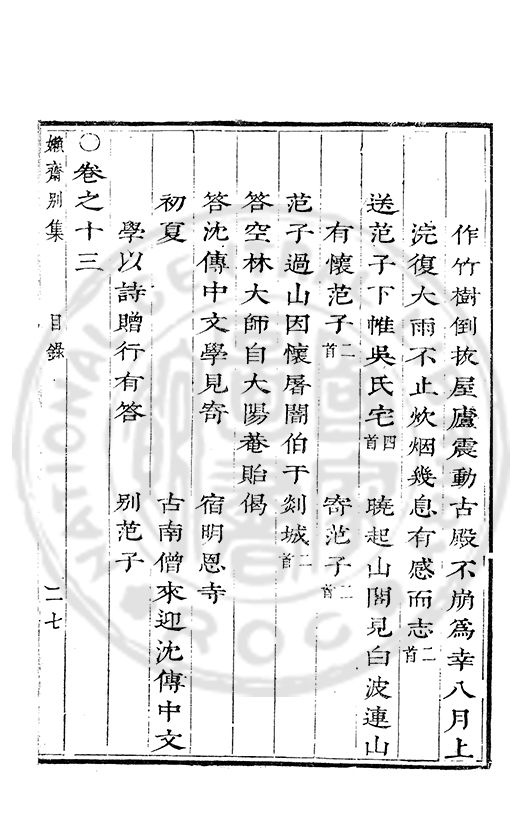 作竹樹倒拔屋廬震動古殿不崩爲幸八月上
浣復大雨不止炊烟幾息有感而志二首
送范子下帷吳氏宅四首 曉起山閣見白波連山
有懷范子二首 寄范子二首
范子過山因懷屠闇伯于剡城二首
答空林大師自大陽菴貽偈
答沈傳中文學見寄 宿明恩寺
初夏 古南僧來迎沈傳中文
學以詩贈行有答 別范子
○卷之十三
嬾齋別集 目錄 二七